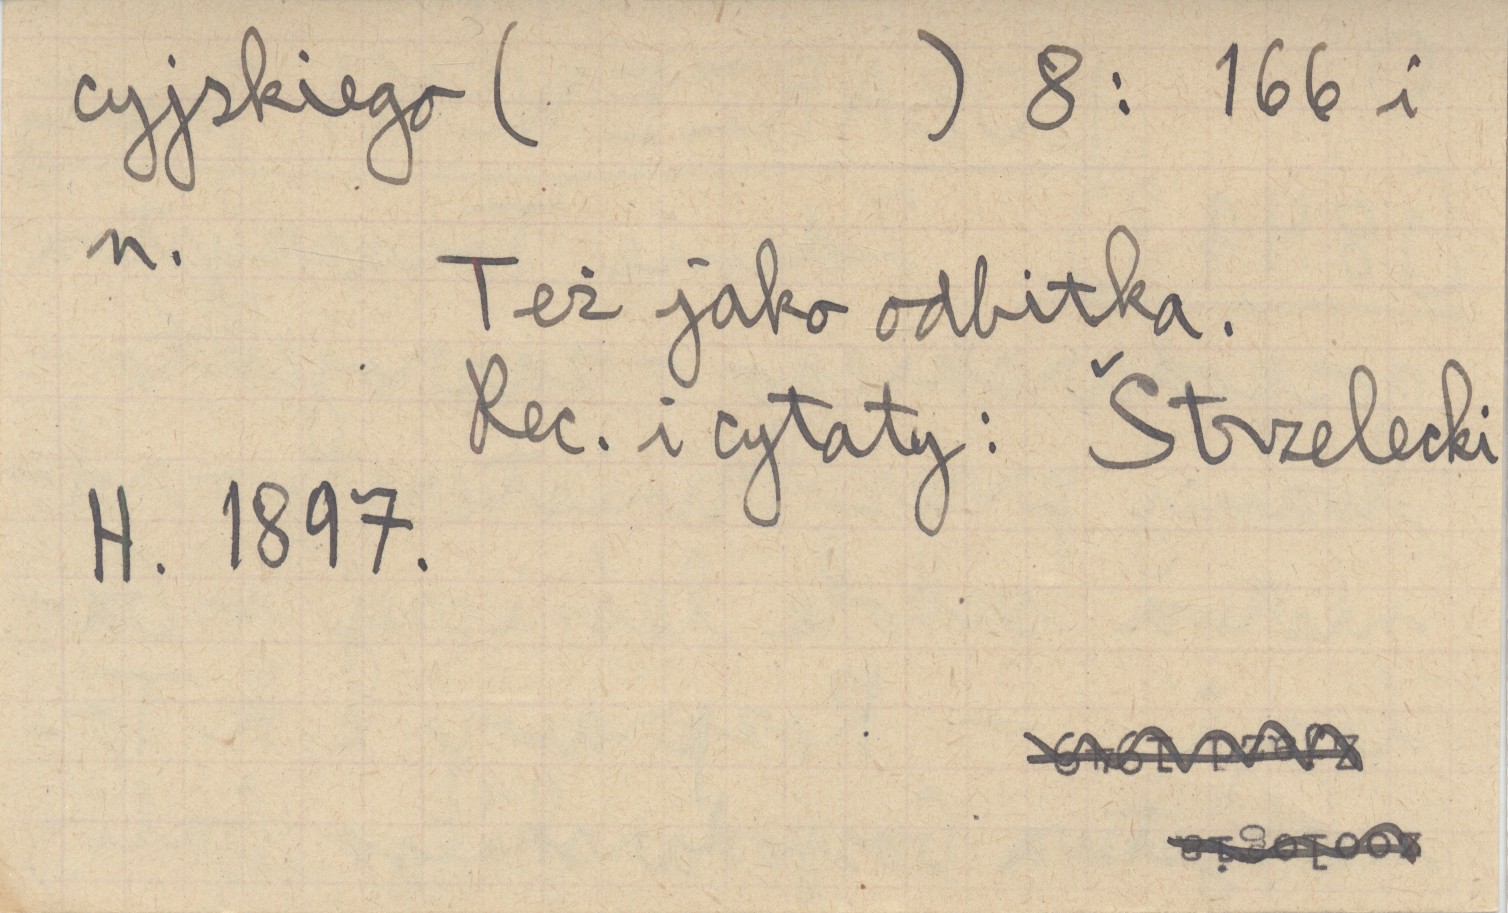 cyjskiego (            ) 8: 166 i
n.
Też jako odbitka.
Rec. i cytaty: Strzelecki
H. 1897.